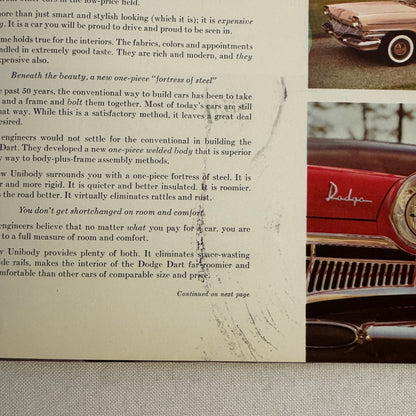 other cars in the low-price field.
more than just smart and stylish looking (which it is); it is expensive
It is a car you will be proud to drive and proud to be seen in.
me holds true for the interiors. The fabrics, colors and appointments
ndled in extremely good taste. They are rich and modern, and they
xpensive also.
Beneath the beauty, a new one-piece "fortress of steel"
e past 50 years, the conventional way to build cars has been to take
and a frame and bolt them together. Most of today's cars are still
hat way. While this is a satisfactory method, it leaves a great deal
esired.
engineers would not settle for the conventional in building the
Dart. They developed a new one-piece welded body that is superior
y way to body-plus-frame assembly methods.
w Unibody surrounds you with a one-piece fortress of steel. It is
r and more rigid. It is quieter and better insulated. It is roomier.
s the road better. It virtually eliminates rattles and rust.
You don't get shortchanged on room and comfort.
engineers believe that no matter what you pay for a car, you are
to a full measure of room and comfort.
w Unibody provides plenty of both. It eliminates space-wasting
de rails, makes the interior of the Dodge Dart far roomier and
mfortable than other cars of comparable size and price.
Continued on next page
Dodge